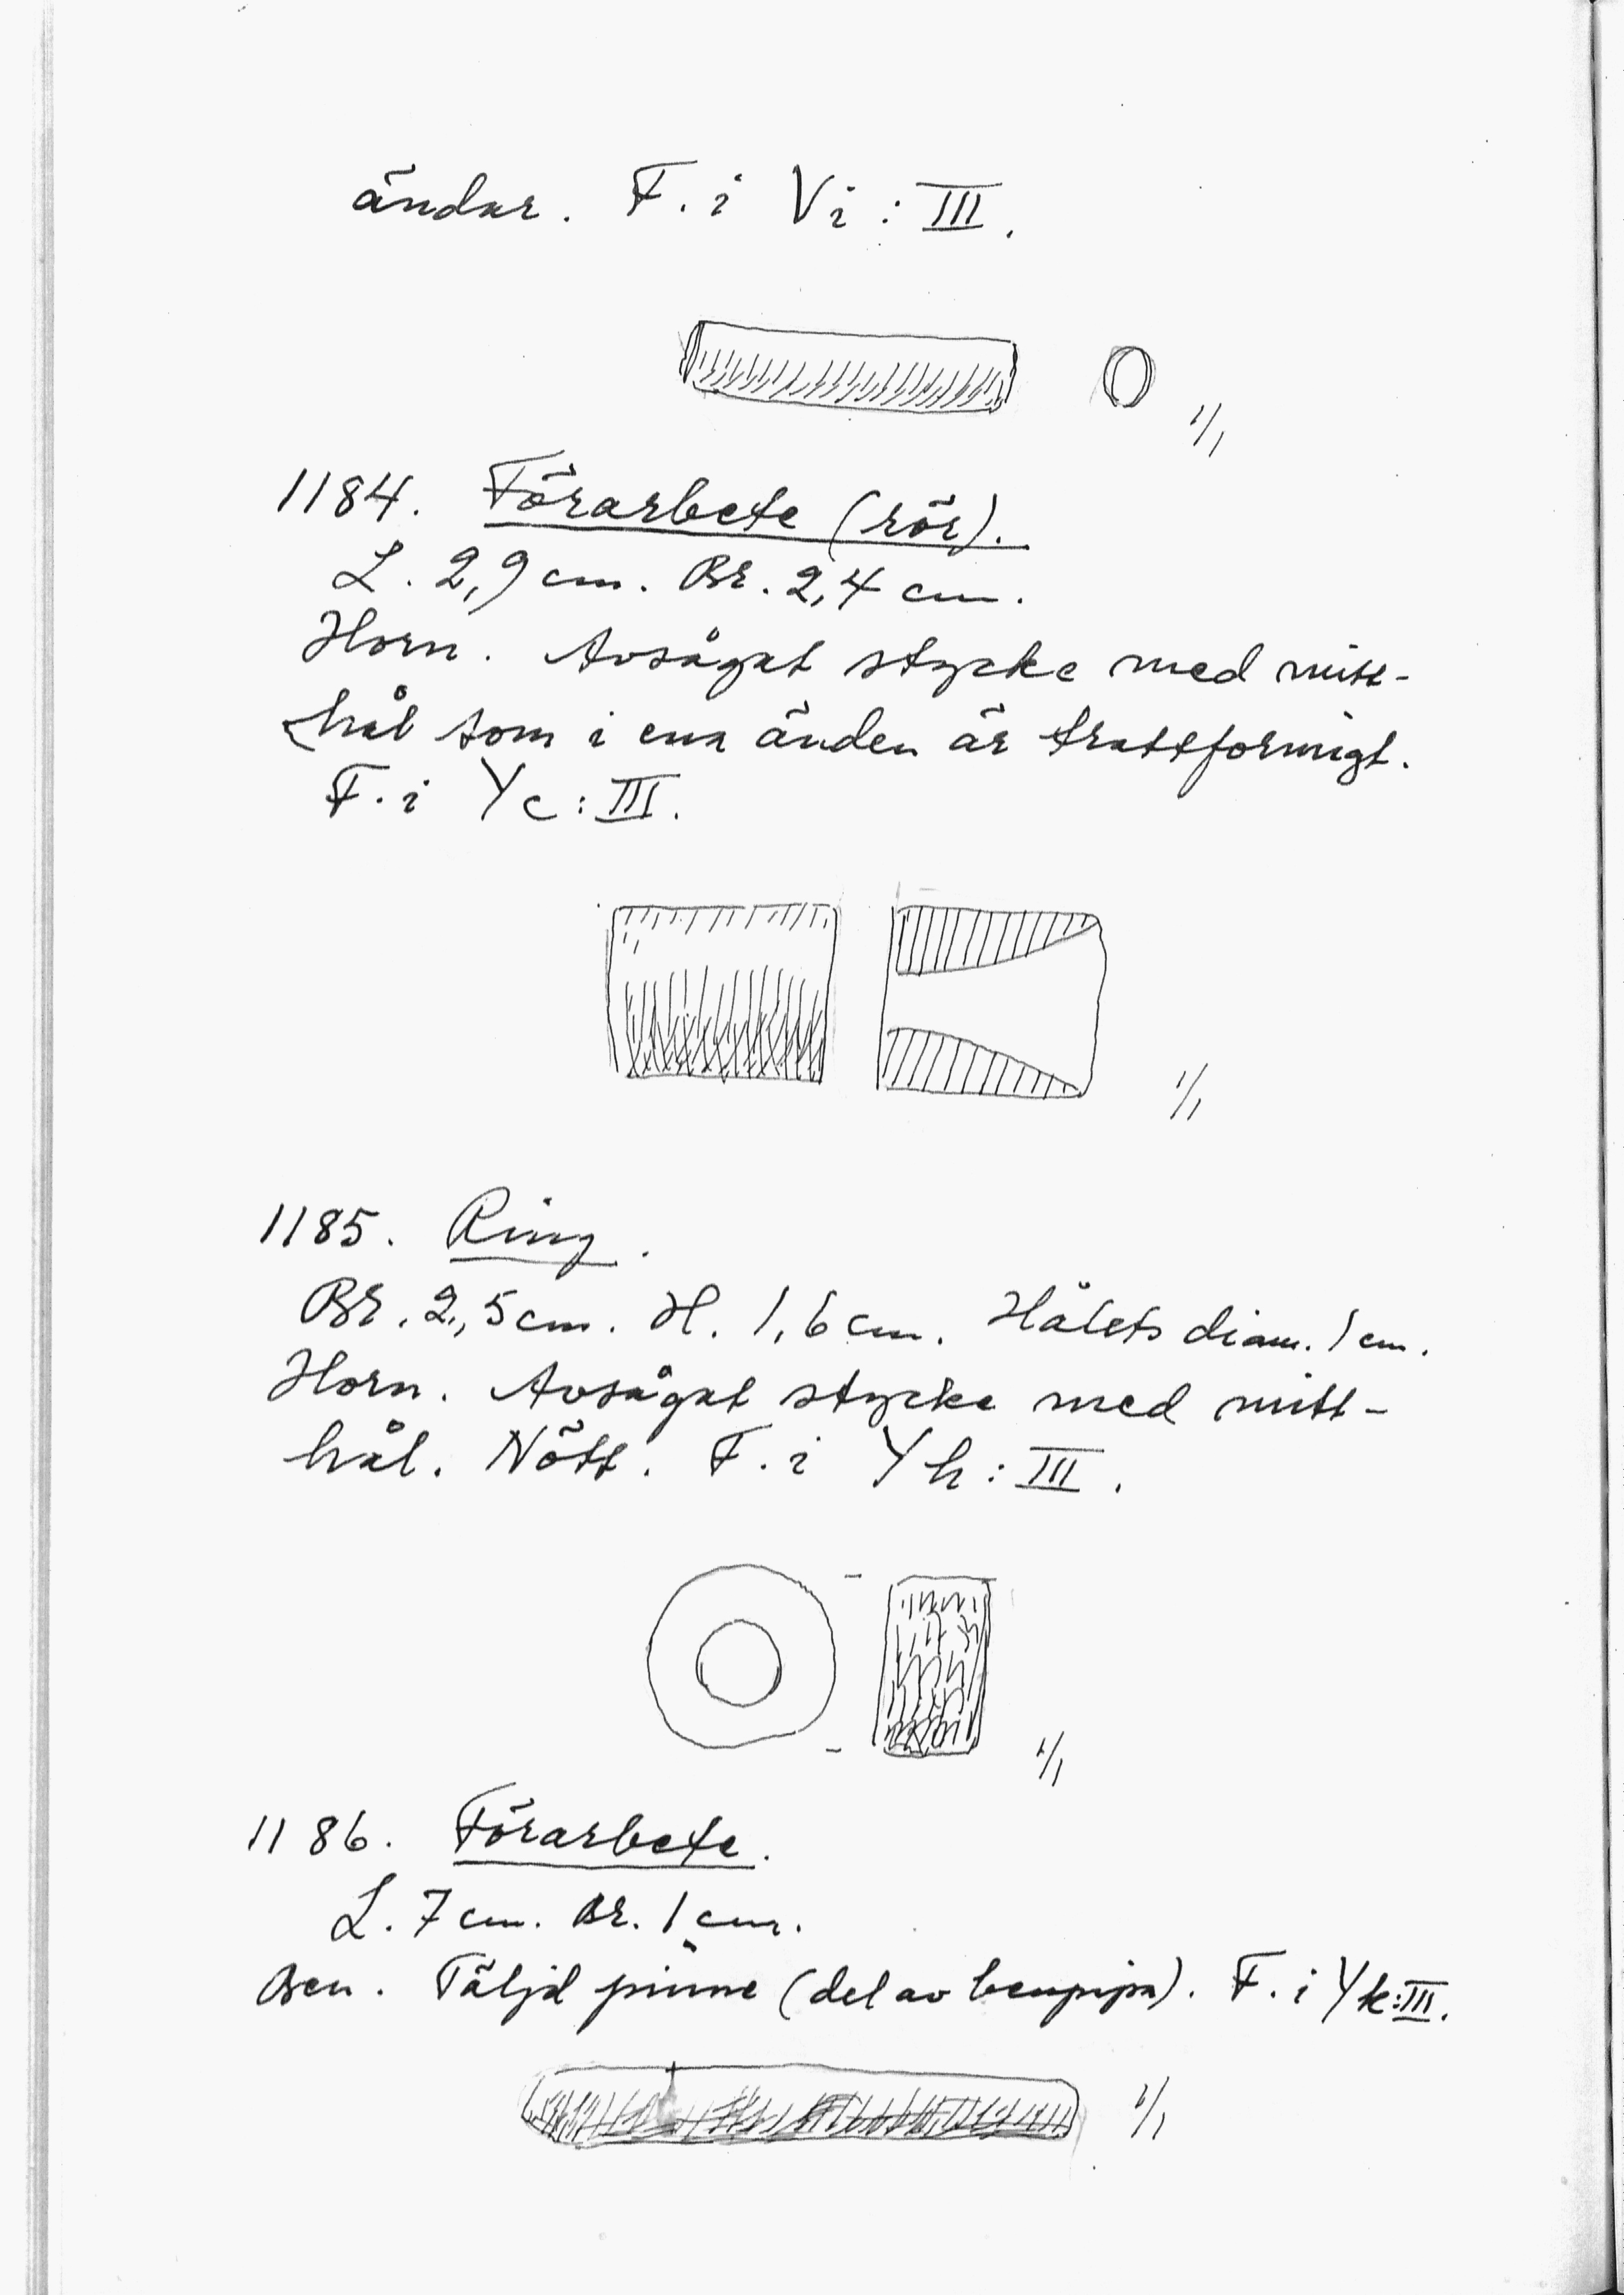 ändar. F. i Vi : III.
1/1
1184. Förarbete (rör).
L. 2,9 cm. Br. 2,4 cm.
Horn. Avsågat stycke med mitt-
hål som i ena änden är trattformigt.
F. i Yc : III.
1/1
1185. Ring.
Br. 2,5 cm. H. 1,6 cm. Hålets diam. 1 cm.
Horn. Avsågat stycke med mitt-
hål. Nött. F. i Yh : III.
1/1
1186. Förarbete.
L. 7 cm. Br. 1 cm.
Ben. Täljd pinne (del av benpipa). F. i Yk:III.
1/1